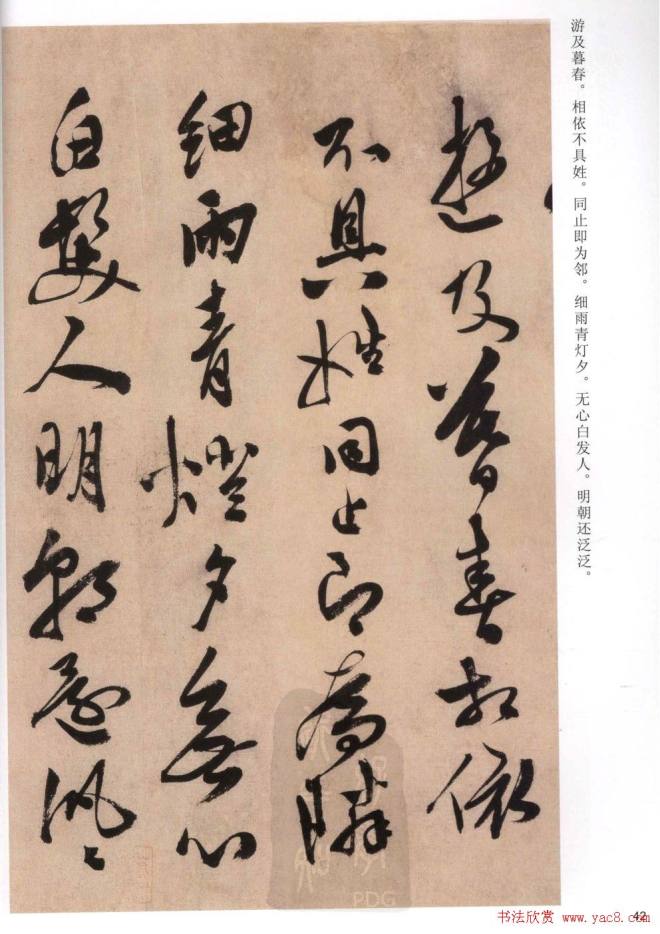 游及暮春。相依不具姓。同止即为邻。细雨青灯夕。无心白发人。明朝还泛泛。
遊及暮春相依
不具姓同止即為鄰
细雨青燈夕無心
白髮人明朝還汎汎
PDG
42
书法欣赏 www.yac8.com